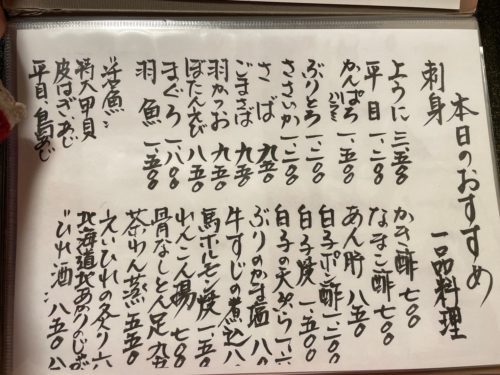 本日のおすすめ
刺身
一品料理
平目 一、二〇〇
かんぱち 一、五〇〇
ぶりとろ 一、二〇〇
さば 九五〇
ごまさば 九五〇
羽かつお 九五〇
ぼたんえび 八五〇
まぐろ 一、八〇〇
羽魚 一、五〇〇
活魚
特大甲貝
皮はぎ
平目、島あじ
かき酢 七〇〇
なまこ酢 七〇〇
あん肝 八五〇
白子ポン酢 一、二〇〇
白子焼 一、五〇〇
白子の天ぷら 一、六
ぶりのかま塩 一、八〇
牛すじの煮込 八
馬ホルモン焼 一、五五〇
れんこん揚 七〇〇
骨なしとん足 九五
茶わん蒸 五五〇
えいひれの炙り 六
北海道北あかりのじゃが
ひれ酒 八五〇